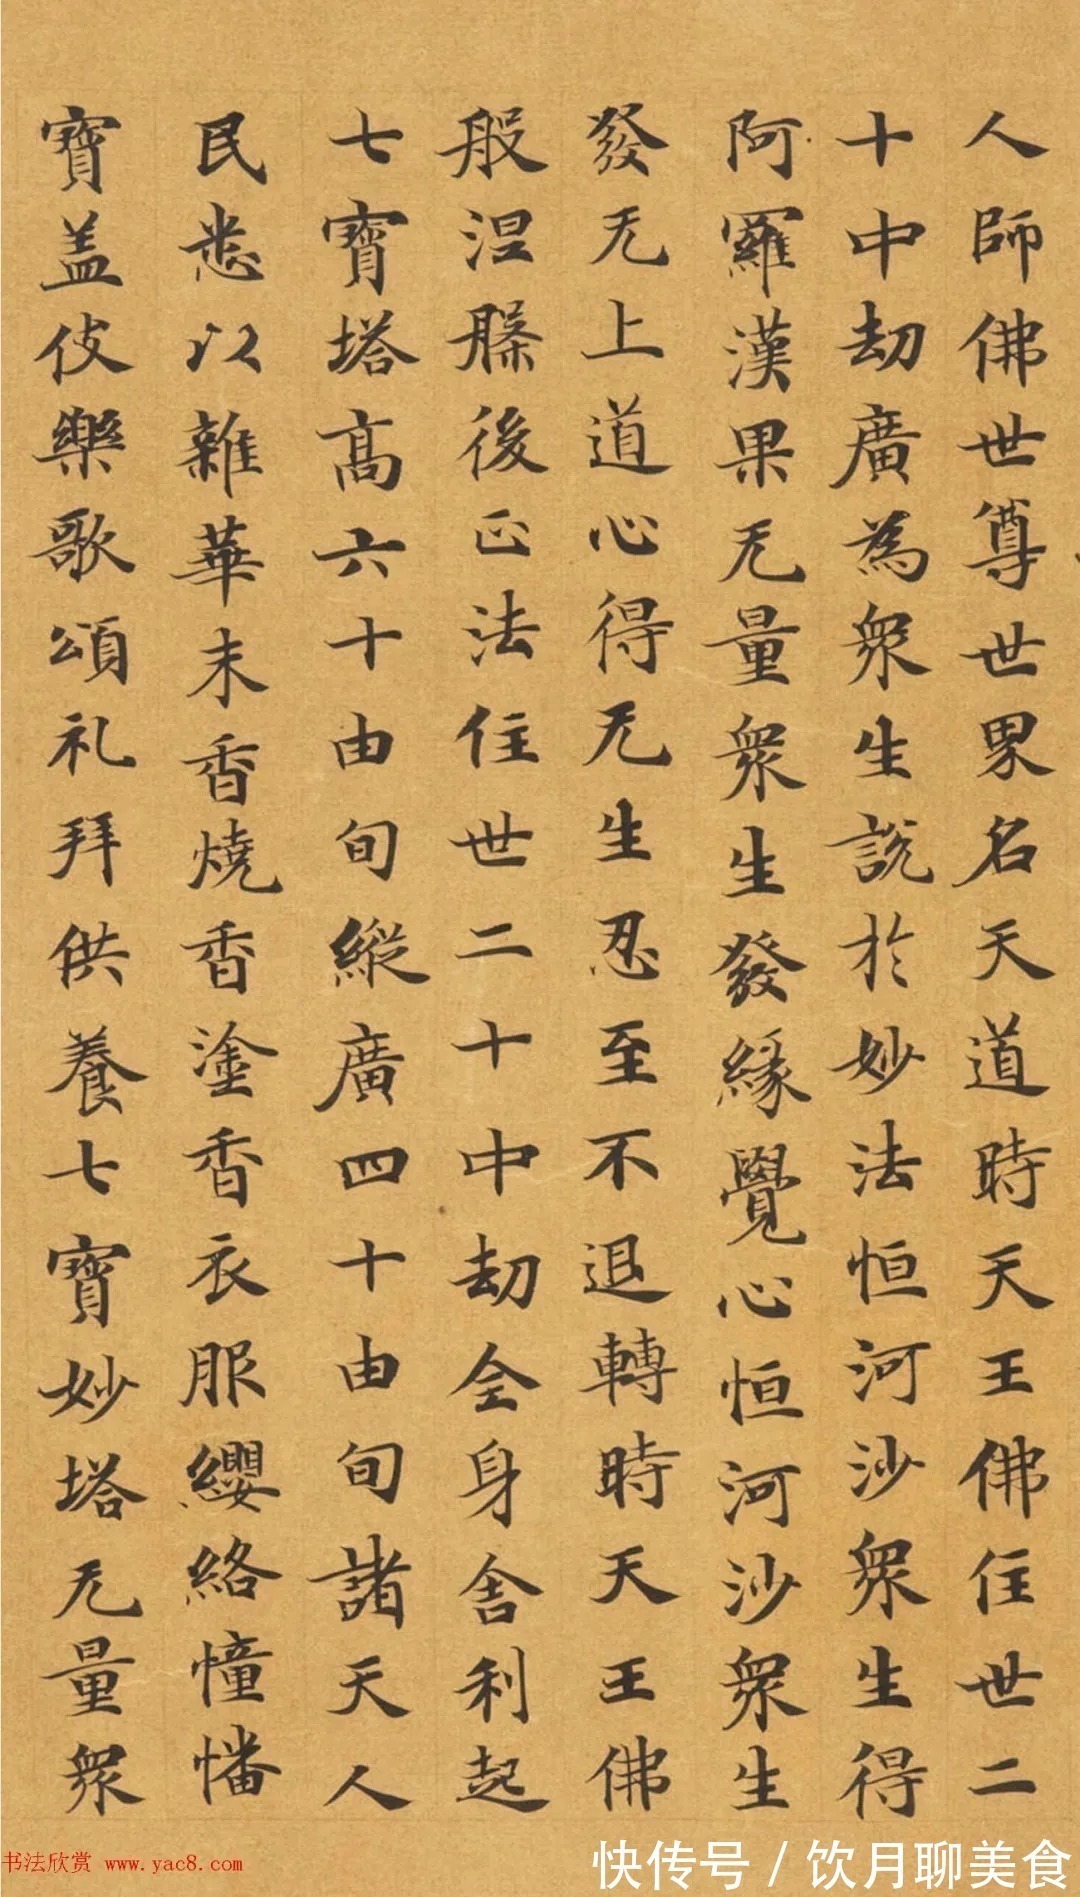 人師佛世尊世界名天道時天王佛住世二
十中劫廣為衆生說於妙法恒河沙衆生得
阿羅漢果无量衆生發緣覺心恒河沙衆生
發无上道心得无生忍至不退轉時天王佛
般涅槃後正法住世二十中劫全身舍利起
七寶塔高六十由旬縱廣四十由旬諸天人
民悉以雜華末香燒香塗香衣服纓絡幢幡
寶盖伎樂歌頌礼拜供養七寶妙塔无量衆
书法欣赏 www.yac8.com
快传号 / 饮月聊美食